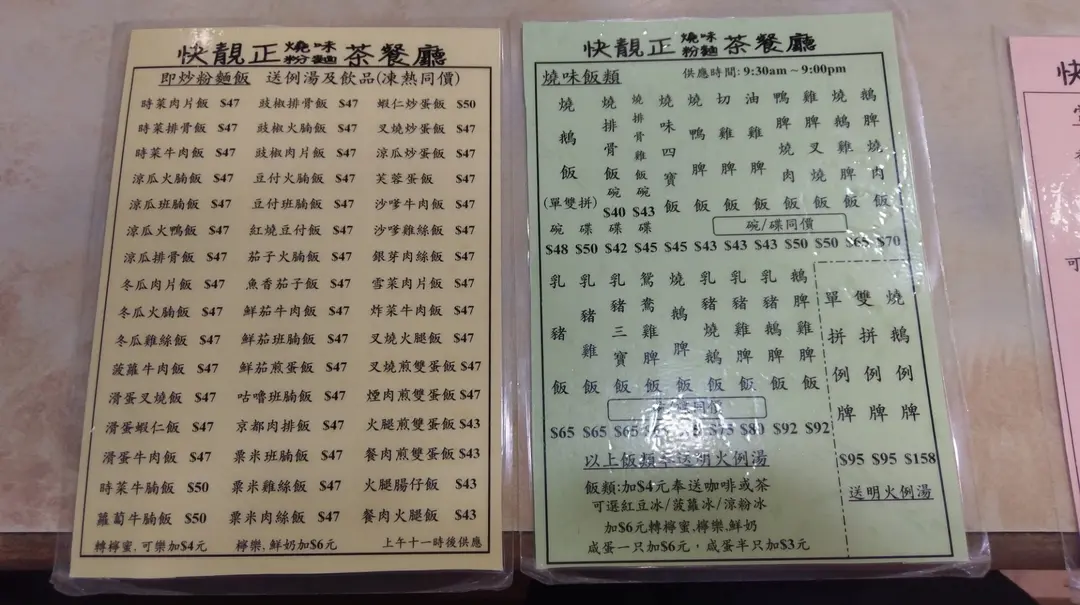 快靚正 燒味粉麵 茶餐廳
即炒粉麵飯 送例湯及飲品(凍熱同價)
時菜肉片飯 $47 豉椒排骨飯 $47 蝦仁炒蛋飯 $50
時菜排骨飯 $47 豉椒火腩飯 $47 叉燒炒蛋飯 $47
時菜牛肉飯 $47 豉椒肉片飯 $47 涼瓜炒蛋飯 $47
涼瓜火腩飯 $47 豆付火腩飯 $47 芙蓉蛋飯 $47
涼瓜班腩飯 $47 豆付班腩飯 $47 沙嗲牛肉飯 $47
涼瓜火鴨飯 $47 紅燒豆付飯 $47 沙嗲雞絲飯 $47
涼瓜排骨飯 $47 茄子火腩飯 $47 銀芽肉絲飯 $47
冬瓜肉片飯 $47 魚香茄子飯 $47 雪菜肉片飯 $47
冬瓜火腩飯 $47 鮮茄牛肉飯 $47 炸菜牛肉飯 $47
冬瓜雞絲飯 $47 鮮茄班腩飯 $47 叉燒火腿飯 $47
菠蘿牛肉飯 $47 鮮茄煎蛋飯 $47 叉燒煎雙蛋飯 $47
滑蛋叉燒飯 $47 咕嚕班腩飯 $47 煙肉煎雙蛋飯 $47
滑蛋蝦仁飯 $47 京都肉排飯 $47 火腿煎雙蛋飯 $43
滑蛋牛肉飯 $47 粟米班腩飯 $47 餐肉煎雙蛋飯 $43
時菜牛腩飯 $50 粟米雞絲飯 $47 火腿腸仔飯 $43
蘿蔔牛腩飯 $50 粟米肉絲飯 $47 餐肉火腿飯 $43
轉檸蜜,可樂加$4元 檸樂,鮮奶加$6元 上午十一時後供應
快靚正 燒味粉麵 茶餐廳
燒味飯類 供應時間: 9:30am ~ 9:00pm
燒鵝飯(單雙拼)
燒排骨飯碗 $40
燒排骨雞飯碗 $43
燒味四寶飯
燒鴨脾飯
切雞脾飯
油雞脾飯
鴨脾燒肉飯
雞脾叉燒飯
燒鵝雞脾飯
鵝脾燒肉飯
碗 碟 碟 碟
碗/碟同價
$48 $50 $42 $45 $45 $43 $43 $43 $50 $50 $65 $70
乳豬飯
乳豬雞飯
乳豬三寶飯
鴛鴦雞脾飯
燒鵝脾飯
乳豬燒鵝飯
乳豬雞脾飯
乳豬鵝脾飯
鵝脾雞脾飯
同價
$65 $65 $80 $92 $92
單拼例牌
雙拼例牌
燒鵝例牌
$95 $95 $158
送明火例湯
以上飯類奉送明火例湯
飯類:加$4元奉送咖啡或茶
可選紅豆冰/菠蘿冰/涼粉冰
加$6元轉檸蜜,檸樂,鮮奶
咸蛋一只加$6元,咸蛋半只加$3元
快
可